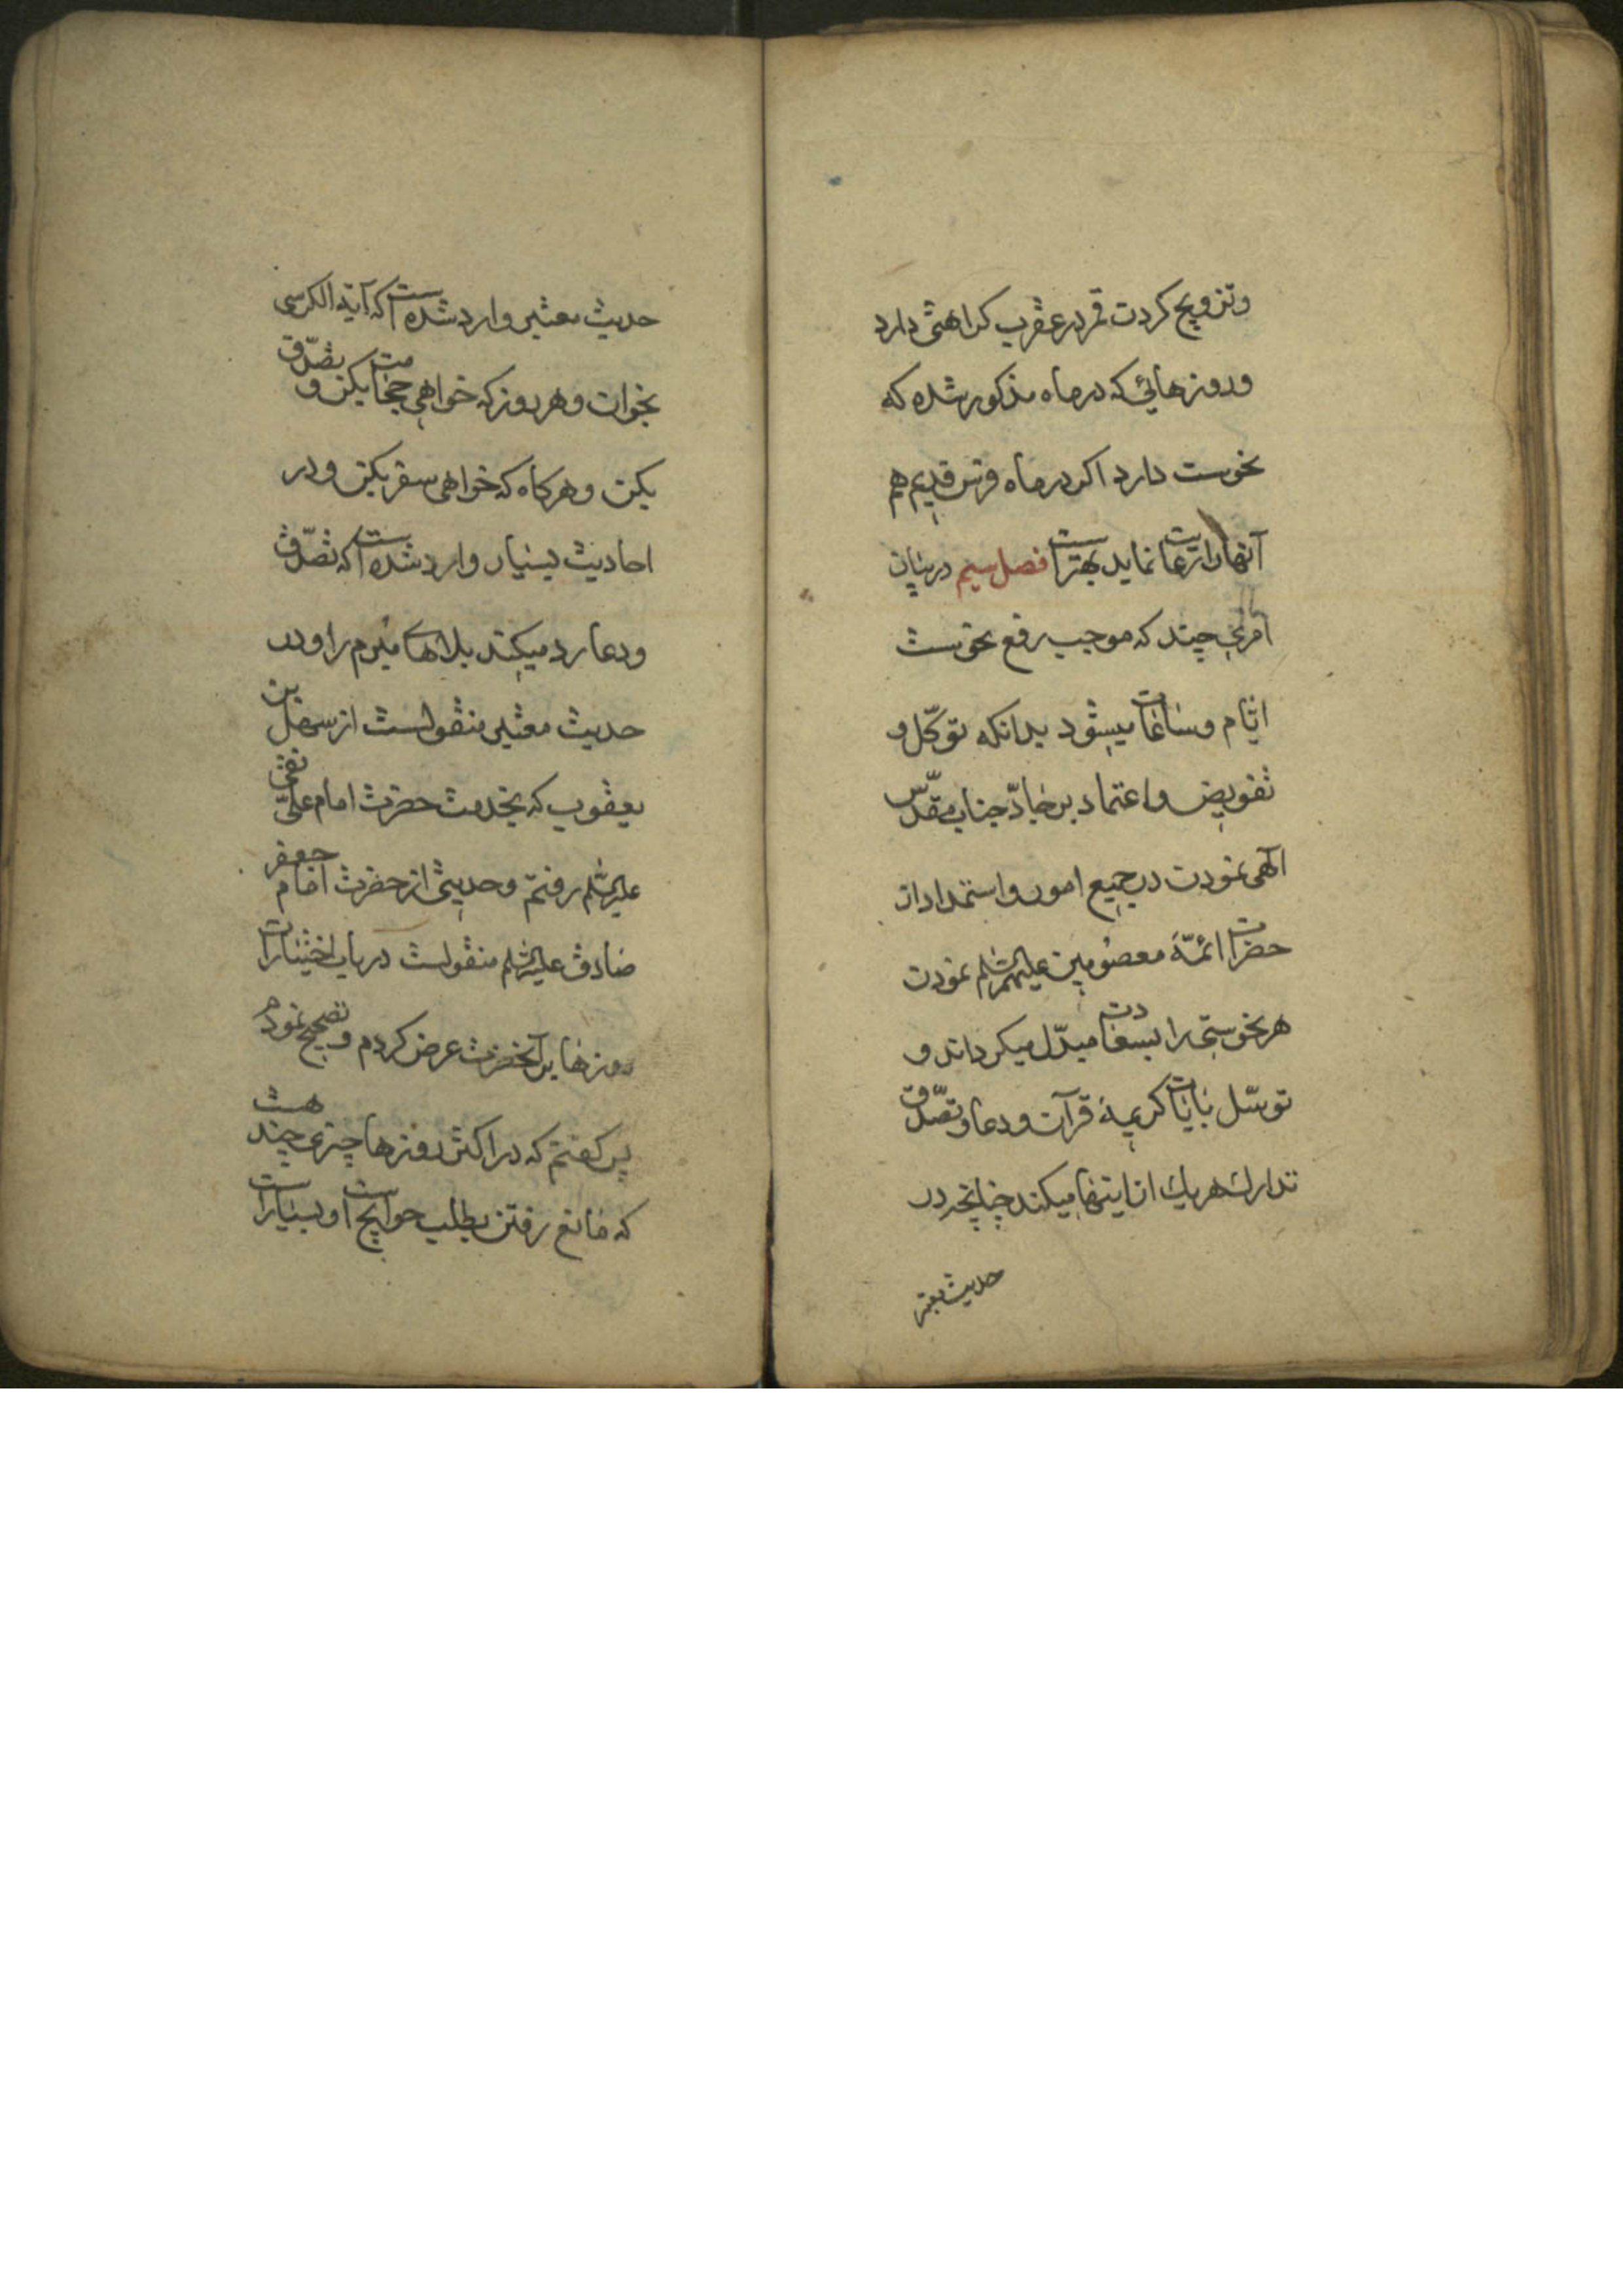 وتزویج کردن قمر در عقرب کراهتی دارد
وروزهائی که در ماه مذکور شده که
نحوست دارد اکر در ماه فرس قدیم هم
آنها را رعایت نماید بهتر است فصل سیم در بیان
امری چند که موجب رفع نحوست
ایّام وساعات میشود بدانکه توکّل و
تفویض واعتماد بر جناب مقدّس
الهی نمودن در جمیع امور واستمداد از
حضرات ائمّهٔ معصومین علیهم السّلم نمودن
هر نحوستی را بسعادت مبدّل میکرداند و
توسّل بایات کریمهٔ قرآن ودعا وتصّدق
تدارك هریك از اینها میکند چنانچه در
حدیث معتبر
حدیث معتبر وارد شده است که آیة الکرسی
بخوان وهر روز که خواهی حجامت بکن و تصّدق
بکن وهرکاه که خواهی سفر بکن ودر
احادیث بسیار وارد شده است که تصّدق
ودعا رد میکند بلاهای مبرم را ودر
حدیث معتبر منقولست از سهل بن
یعقوب که بخدمت حضرت امام علی نقی
علیه السّلم رفتم وحدیثی از حضرت امام جعفر
صادق علیه السّلم منقولست در باب اختیارات
روزها بر آنحضرت عرض کردم وتصحیح نمودم
پس کفتم که در اکثر روزها چیزی چند هست
که مانع رفتن بطلب حوایج است او بسیار است